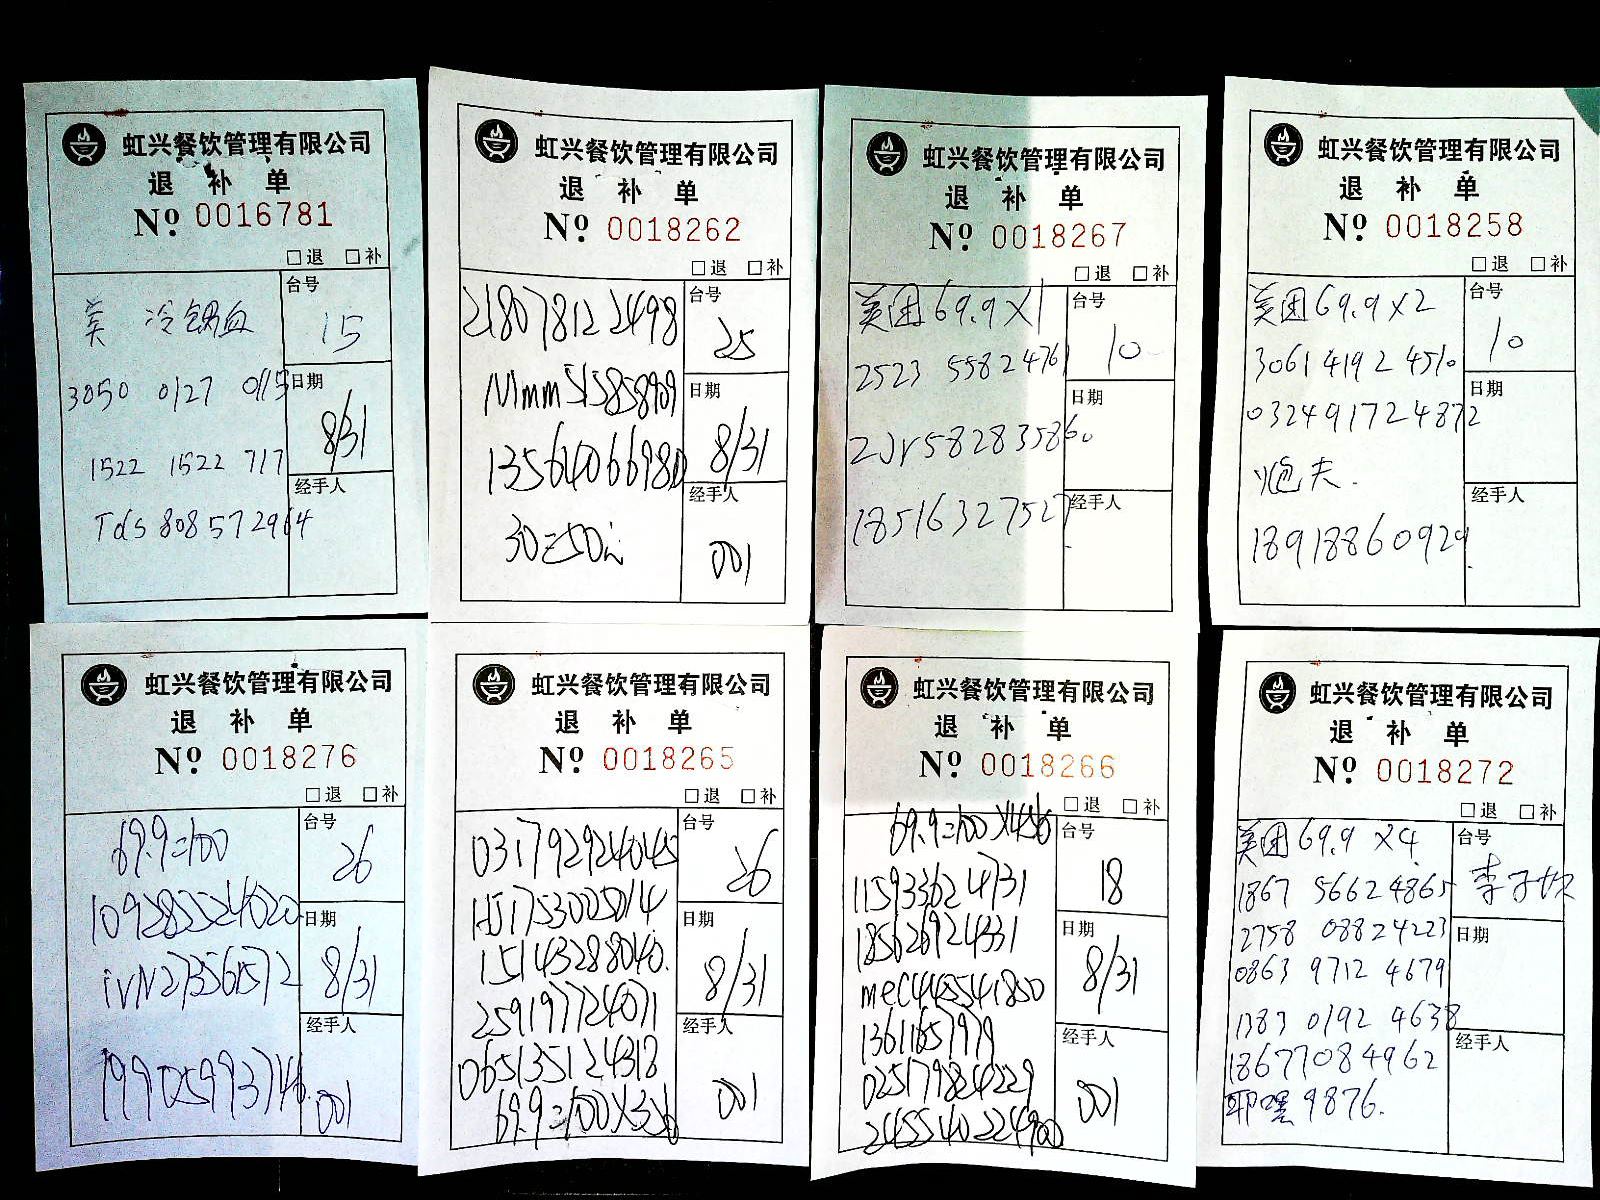 虹兴餐饮管理有限公司
退 补 单
Nº 0016781
□退 □补
台号
15
日期
8/31
经手人
美 冷锅血
3050 0127 0115
1522 1522 717
Tds 808572964
虹兴餐饮管理有限公司
退 补 单
Nº 0018262
□退 □补
台号
25
日期
8/31
经手人
001
218078122498
13564066980
30=50
虹兴餐饮管理有限公司
退 补 单
Nº 0018267
□退 □补
台号
10
日期
经手人
美团69.9X1
2523 55824761
ZJr582835860
18516327527
虹兴餐饮管理有限公司
退 补 单
Nº 0018258
□退 □补
台号
10
日期
经手人
美团69.9X2
3061 4192 4510
032491724872
夫
18918860929
虹兴餐饮管理有限公司
退 补 单
Nº 0018276
□退 □补
台号
26
日期
8/31
经手人
001
69.9=100
109285524020
19905993746
虹兴餐饮管理有限公司
退 补 单
Nº 0018265
□退 □补
台号
26
日期
8/31
经手人
001
031792924045
HJ1753005014
15143288040
259197724071
065135124318
69.9=100X3
虹兴餐饮管理有限公司
退 补 单
Nº 0018266
□退 □补
台号
18
日期
8/31
经手人
001
69.9=100X4
115933624731
185626924331
mec4485541850
13611657979
025179824229
245540224900
虹兴餐饮管理有限公司
退 补 单
Nº 0018272
□退 □补
台号
李子坎
日期
经手人
美团69.9 X4
1867 56624865
2758 08824223
0863 9712 4679
1383 0192 4638
18677084962
耶嘿9876.